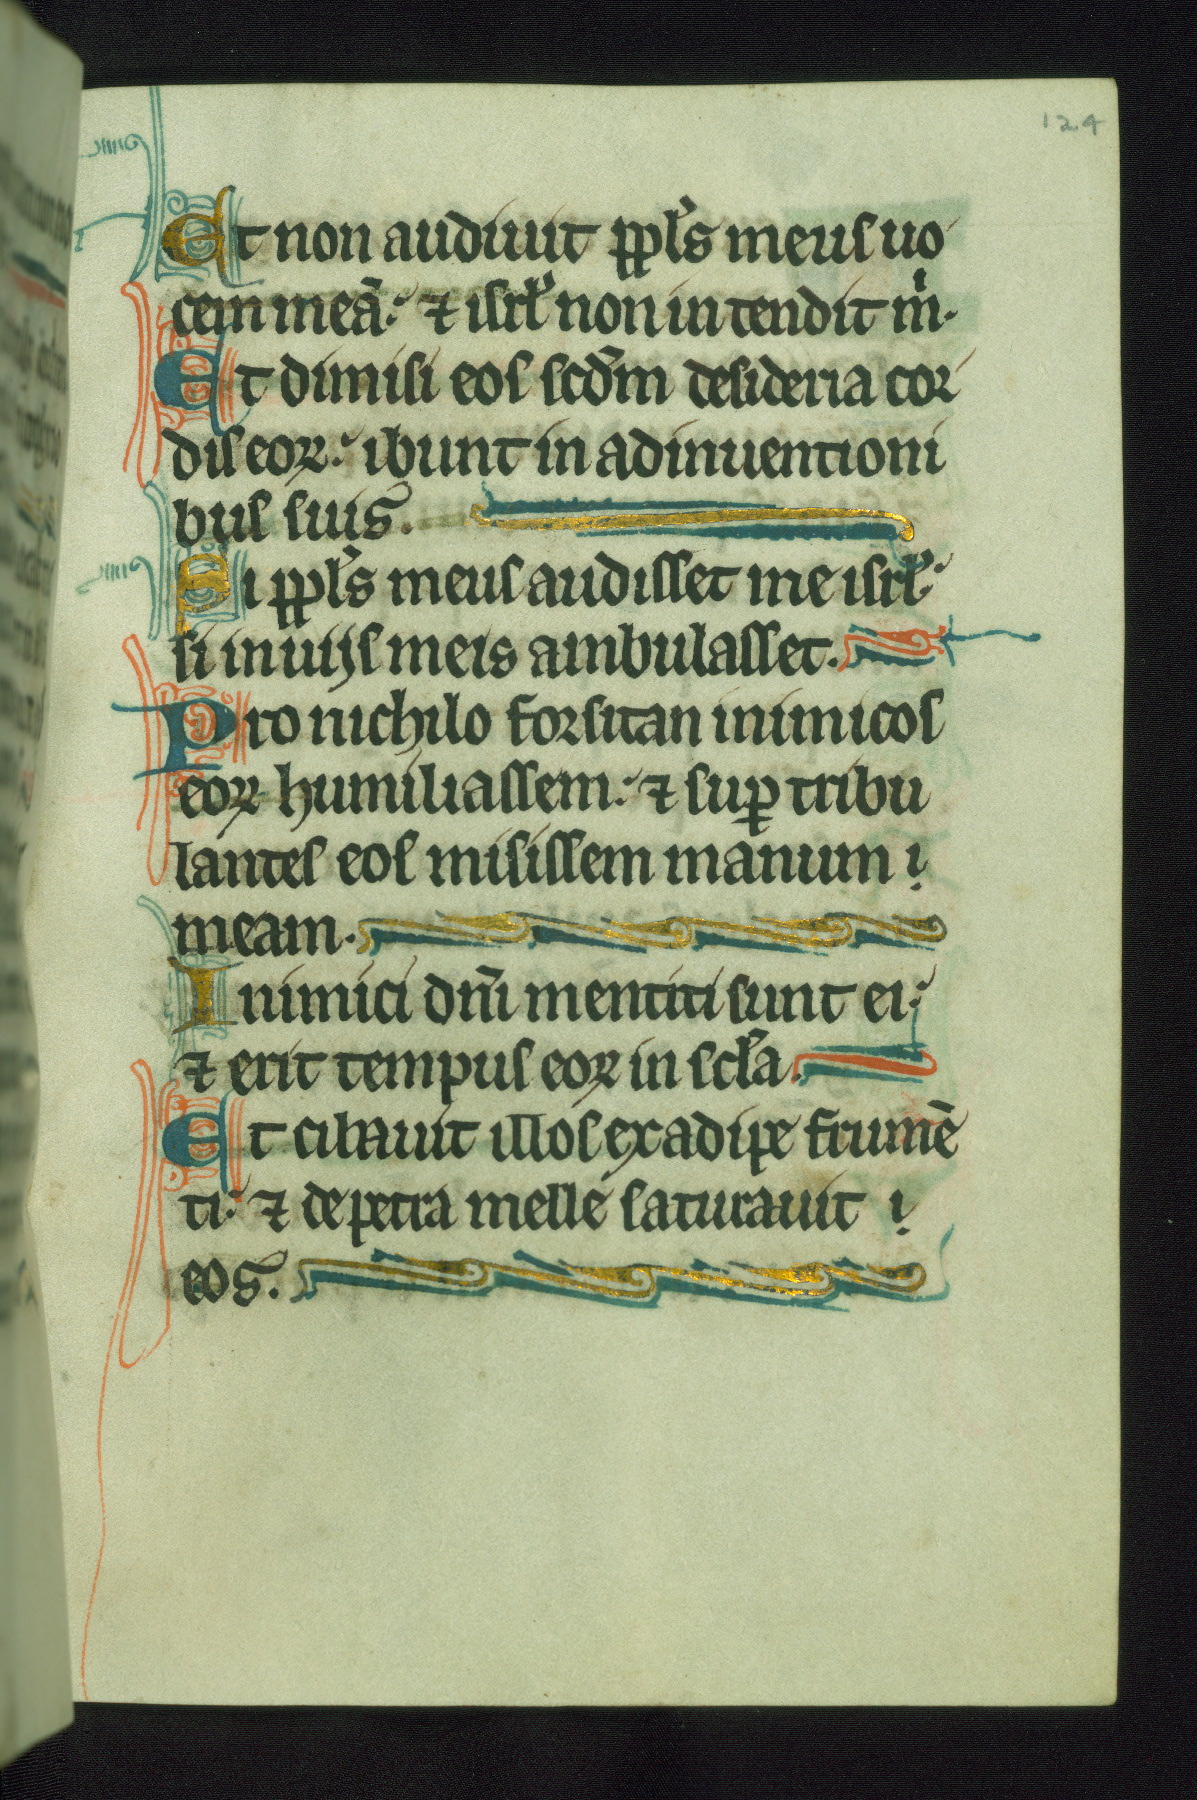 124
Et non audiuit ppl's meus uo
cem meā: ⁊ isrl' non intendit m̉.
Et dimisi eos scd̄m desideria cor
dis eoꝝ: ibunt in adinuentioni
bus suis.
Si ppl's meus audisset me isrl':
si in uijs meis ambulasset.
Pro nichilo forsitan inimicos
eoꝝ humiliassem: ⁊ suꝑ tribu
lantes eos misissem manum
meam.
Inimici dn̄i mentiti sunt ei:
⁊ erit tempus eoꝝ in scl'a.
Et cibauit illos ex adipe frumē
ti: ⁊ de petra melle saturauit
eos.